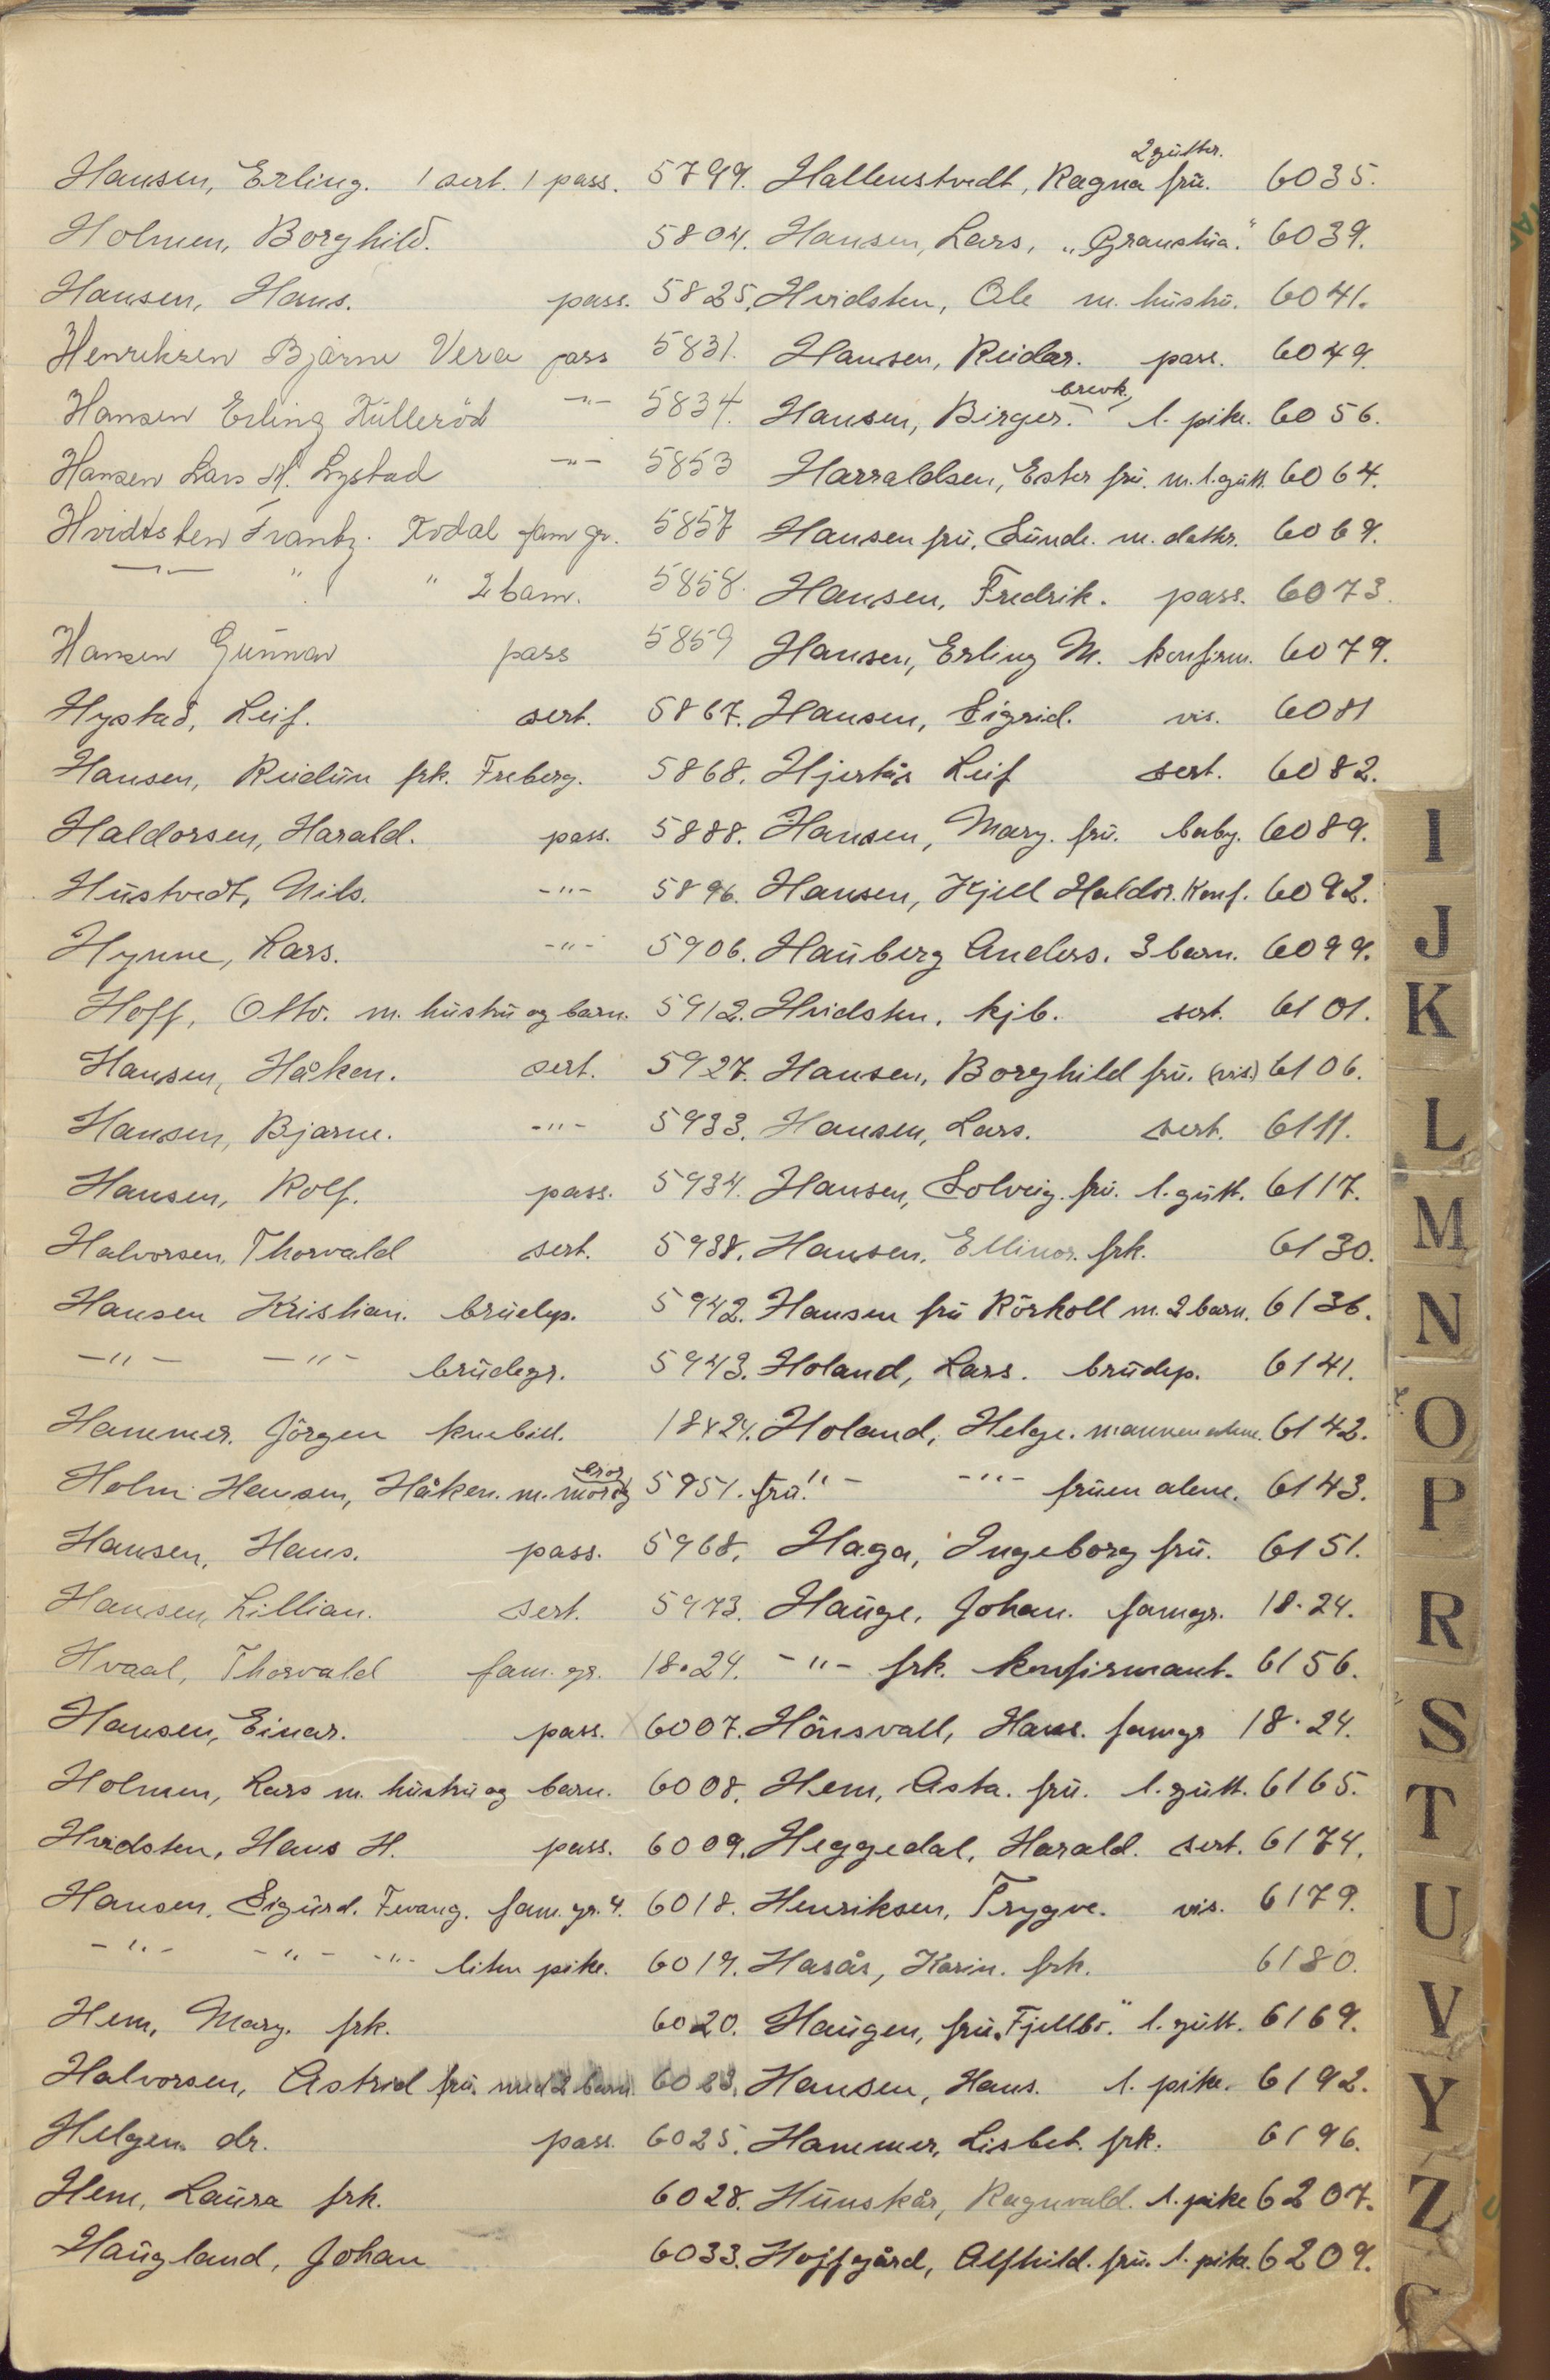 Hansen, Erling. 1 sert. 1 pass. 5799.
Holmen, Borghild. 5804.
Hansen, Hans. pass. 5825.
Henriksen Bjarne Vera pass 5831.
Hansen Erling Külleröd -"- 5834.
Hansen Lars M. Lystad -"- 5853
Hvidtsten Frantz. Kodal fam gr. 5857
-"- " " 2 barn. 5858.
Hansen Günnar pass 5859
Hystad, Leif. sert. 5867.
Hansen, Reidün frk. Freberg. 5868.
Haldorsen, Harald. pass. 5888.
Hüstvedt, Nils. -"- 5896.
Hynne, Lars. -"- 5906.
Hoff, Otto. m. hüstrü og barn. 5912.
Hansen, Håken. sert. 5927.
Hansen, Bjarne. -"- 5933.
Hansen, Rolf. pass. 5934.
Halvorsen, Thorvald sert. 5938.
Hansen Kristian. brüdep. 5942.
-"- -"- brüdegr. 5943.
Hammer. Jörgen knebild. 18x24.
Holm Hansen, Håken. m. mor og bror 5951.
Hansen, Hans. pass. 5968.
Hansen, Lillian. sert. 5973.
Hvaal, Thorvald fam. gr. 18.24.
Hansen, Einar. pass. x 6007.
Holmen, Lars m. hüstrü og barn. 6008.
Hvidsten, Hans H. pass. 6009.
Hansen, Sigürd. Fevang. fam. gr. 4. 6018.
-"- -"- -"- liten pike. 6019.
Hem, Mary. frk. 6020.
Halvorsen, Astrid frü. med 2 barn. 6023.
Helgen dr. pass. 6025.
Hem, Laüra frk. 6028.
Haügland, Johan 6033.
2 gütter.
Hallenstvedt, Ragna frü. 6035.
Hansen, Lars, „Granstüa." 6039.
Hvidsten, Ole m. hüstrü. 6041.
Hansen, Reidar. pass. 6049.
brevk.
Hansen, Birger. l. pike. 6056.
Harraldsen, Ester frü. m. l. gütt. 6064.
Hansen frü. Sünde. m. datter. 6069.
Hansen, Fredrik. pass. 6073.
Hansen, Erling M. konfirm. 6079.
Hansen, Sigrid. vis. 6081
Hjertås Leif sert. 6082.
Hansen, Mary. frü. baby. 6089.
Hansen, Kjell Haldor. Konf. 6092.
Haüberg Anders. 3 barn. 6099.
Hvidsten, kjb. sert. 6101.
Hansen, Borghild frü. (vis.) 6106.
Hansen, Lars. sert. 6111.
Hansen, Solveig. frü. l. gütt. 6117.
Hansen, Ellinor. frk. 6130.
Hansen frü Rörkoll m. 2 barn. 6136.
Holand, Lars. brüdep. 6141.
Holand, Helge. mannen alene. 6142.
frü. " - -"- früen alene. 6143.
Haga, Ingeborg frü. 6151.
Haüge, Johan. famgr. 18.24.
-"- frk. konfirmant. 6156.
Hönsvall, Hans. famgr 18.24.
Hem, Asta. frü. l. gütt. 6165.
Heggedal, Harald. sert. 6174.
Henriksen, Trygve. vis. 6179.
Hasås, Karin. frk. 6180.
Haügen, frü. „Fjellbo." l. gütt. 6169.
Hansen, Hans. l. pike. 6192.
Hammer, Lisbet. frk. 6196.
Hünskår, Ragnvald. l. pike 6207.
Hoffgård, Alfhild. frü. l. pike. 6209.
I
J
K
L
M
N
O
P
R
S
T
U
V
Y
Z